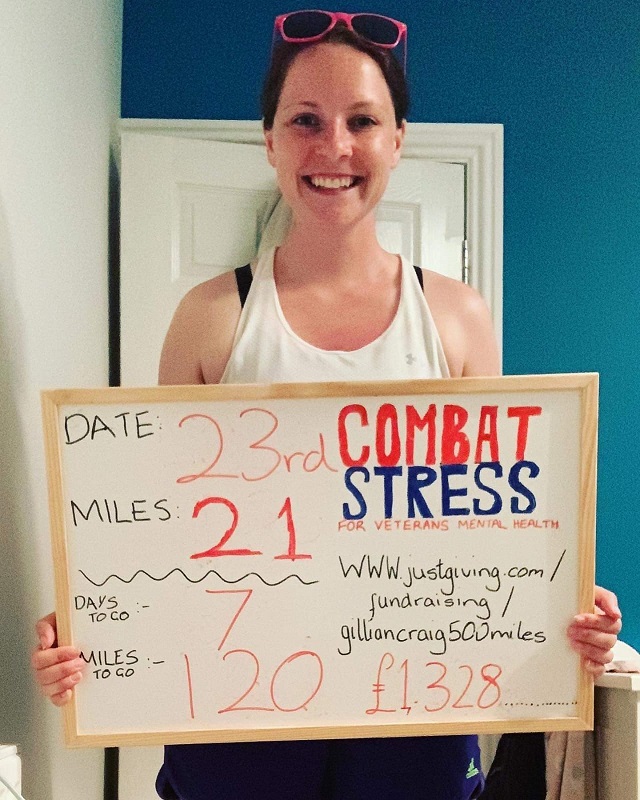 DATE: 23rd
MILES: 21
DAYS TO GO :- 7
MILES TO GO :- 120
COMBAT
STRESS
FOR VETERANS MENTAL HEALTH
WWW.justgiving.com/
fundraising/
gilliancraig500miles
£1,328..............